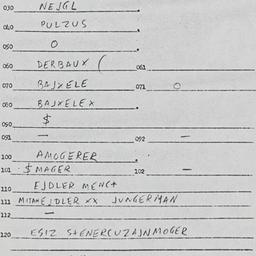 030 NEJGL
040 PULZUS
050 O
060 DERBAUX ( 061
070 BAJXELE 071 O
080 BAJXELEX
090 $
091 — 092 —
100 AMOGERER
101 $ MAGER 102 —
110 EJDLER MENC+
111 XX JUNGERMAN
112 —
120 EGIZ